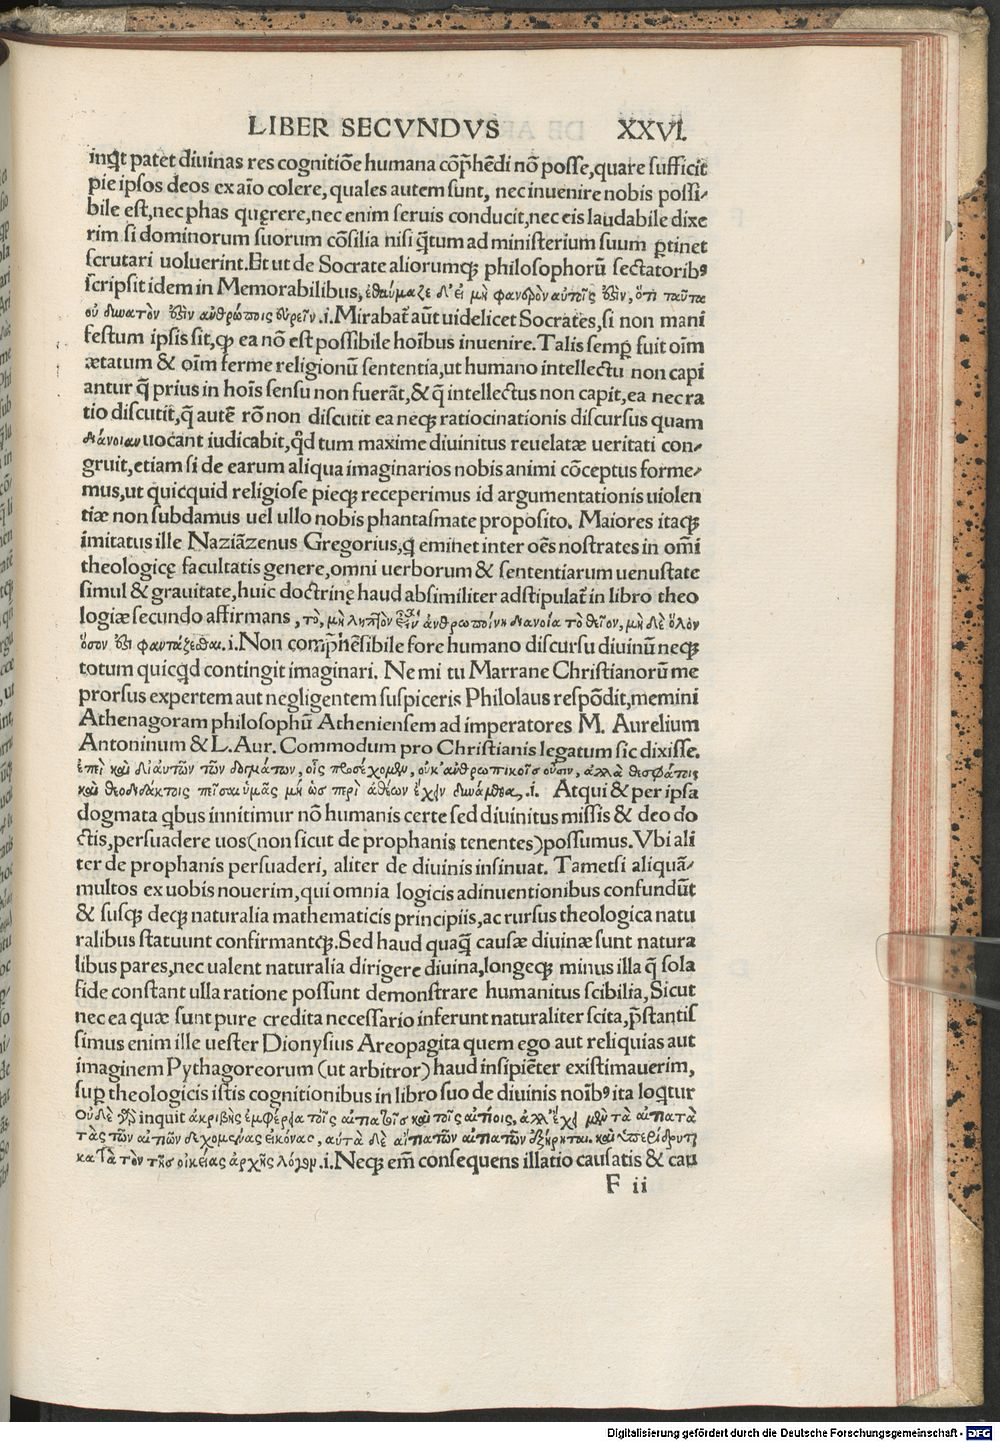 LIBER SECVNDVS XXVI.
inqͥt patet diuinas res cognitiōe humana cōp̄hēdi nō posse, quare sufficit
pie ipsos deos ex aīo colere, quales autem sunt, nec inuenire nobis possi-
bile est, nec phas quęrere, nec enim seruis conducit, nec eis laudabile dixe
rim si dominorum suorum cōsilia nisi q̄tum ad ministerium suum ꝑtinet
scrutari uoluerint. Et ut de Socrate aliorumqꝫ philosophorū sectatoribꝰ
scripsit idem in Memorabilibus, ἐθαύμαζε δ' εἰ μὴ φανερὸν αὐτοῖς ὅτι ταῦτα
οὐ δυνατὸν ἀνθρώποις εὑρεῖν .i. Mirabat̄ aūt uidelicet Socrates, si non mani
festum ipsis sit, ꝙ ea nō est possibile hoībus inuenire. Talis semꝑ fuit oīm
ætatum & oīm ferme religionū sententia, ut humano intellectu non capi
antur q̄ prius in hoīs sensu non fuerāt, & q̄ intellectus non capit, ea nec ra
tio discutit, q̄ autē rō non discutit ea neqꝫ ratiocinationis discursus quam
διάνοιαν uocant iudicabit, qͥd tum maxime diuinitus reuelatæ ueritati con-
gruit, etiam si de earum aliqua imaginarios nobis animi cōceptus forme-
mus, ut quicquid religiose pieqꝫ receperimus id argumentationis uiolen
tiæ non subdamus uel ullo nobis phantasmate proposito. Maiores itaqꝫ
imitatus ille Naziāzenus Gregorius, qͥ eminet inter oēs nostrates in omī
theologicę facultatis genere, omni uerborum & sententiarum uenustate
simul & grauitate, huic doctrinę haud absimiliter adstipulat̄ in libro theo
logiæ secundo affirmans, τὸ, μὴ ληπτὸν εἶναι ἀνθρωπίνῃ διανοίᾳ τὸ θεῖον, μηδὲ ὅλον
ὅσον ἐστὶ φαντάζεσθαι .i. Non comp̄hēsibile fore humano discursu diuinū neqꝫ
totum quicqͥd contingit imaginari. Ne mi tu Marrane Christianorū me
prorsus expertem aut negligentem suspiceris Philolaus respōdit, memini
Athenagoram philosophū Atheniensem ad imperatores M. Aurelium
Antoninum & L. Aur. Commodum pro Christianis legatum sic dixisse.
ἐπεὶ καὶ δι αὐτῶν τῶν δογμάτων, οἷς προσέχομεν, οὐκ ἀνθρωπικοῖς οὖσιν, ἀλλὰ θεσφάτοις
καὶ θεοδιδάκτοις πεῖσαι ὑμᾶς μὴ ὡς περὶ ἀθέων ἔχειν δυνάμεθα, .i. Atqui & per ipsa
dogmata qͥbus innitimur nō humanis certe sed diuinitus missis & deo do
ctis, persuadere uos (non sicut de prophanis tenentes) possumus. Vbi ali
ter de prophanis persuaderi, aliter de diuinis insinuat. Tametsi aliquā-
multos ex uobis nouerim, qui omnia logicis adinuentionibus confundūt
& susqꝫ deqꝫ naturalia mathematicis principiis, ac rursus theologica natu
ralibus statuunt confirmantqꝫ. Sed haud quaq̄ causæ diuinæ sunt natura
libus pares, nec ualent naturalia dirigere diuina, longeqꝫ minus illa q̄ sola
fide constant ulla ratione possunt demonstrare humanitus scibilia, Sicut
nec ea quæ sunt pure credita necessario inferunt naturaliter scita, p̄stantis
simus enim ille uester Dionysius Areopagita quem ego aut reliquias aut
imaginem Pythagoreorum (ut arbitror) haud insipiēter existimauerim,
suꝑ theologicis istis cognitionibus in libro suo de diuinis noībꝰ ita loqͥtur
Οὐδὲ γὰρ inquit ἀκριβὴς ἐμφέρεια τοῖς αἰτιατοῖς καὶ τοῖς αἰτίοις, ἀλλ' ἔχει μὲν τὰ αἰτιατὰ
τὰς τῶν αἰτίων δεχομένας εἰκόνας, αὐτὰ δὲ αἴτια τῶν αἰτιατῶν ἐξῄρηται. καὶ ὑπερίδρυται
κατὰ τὸν τῆς οἰκείας ἀρχῆς λόγον .i. Neqꝫ em̄ consequens illatio causatis & cau
F ii
Digitalisierung gefördert durch die Deutsche Forschungsgemeinschaft - DFG